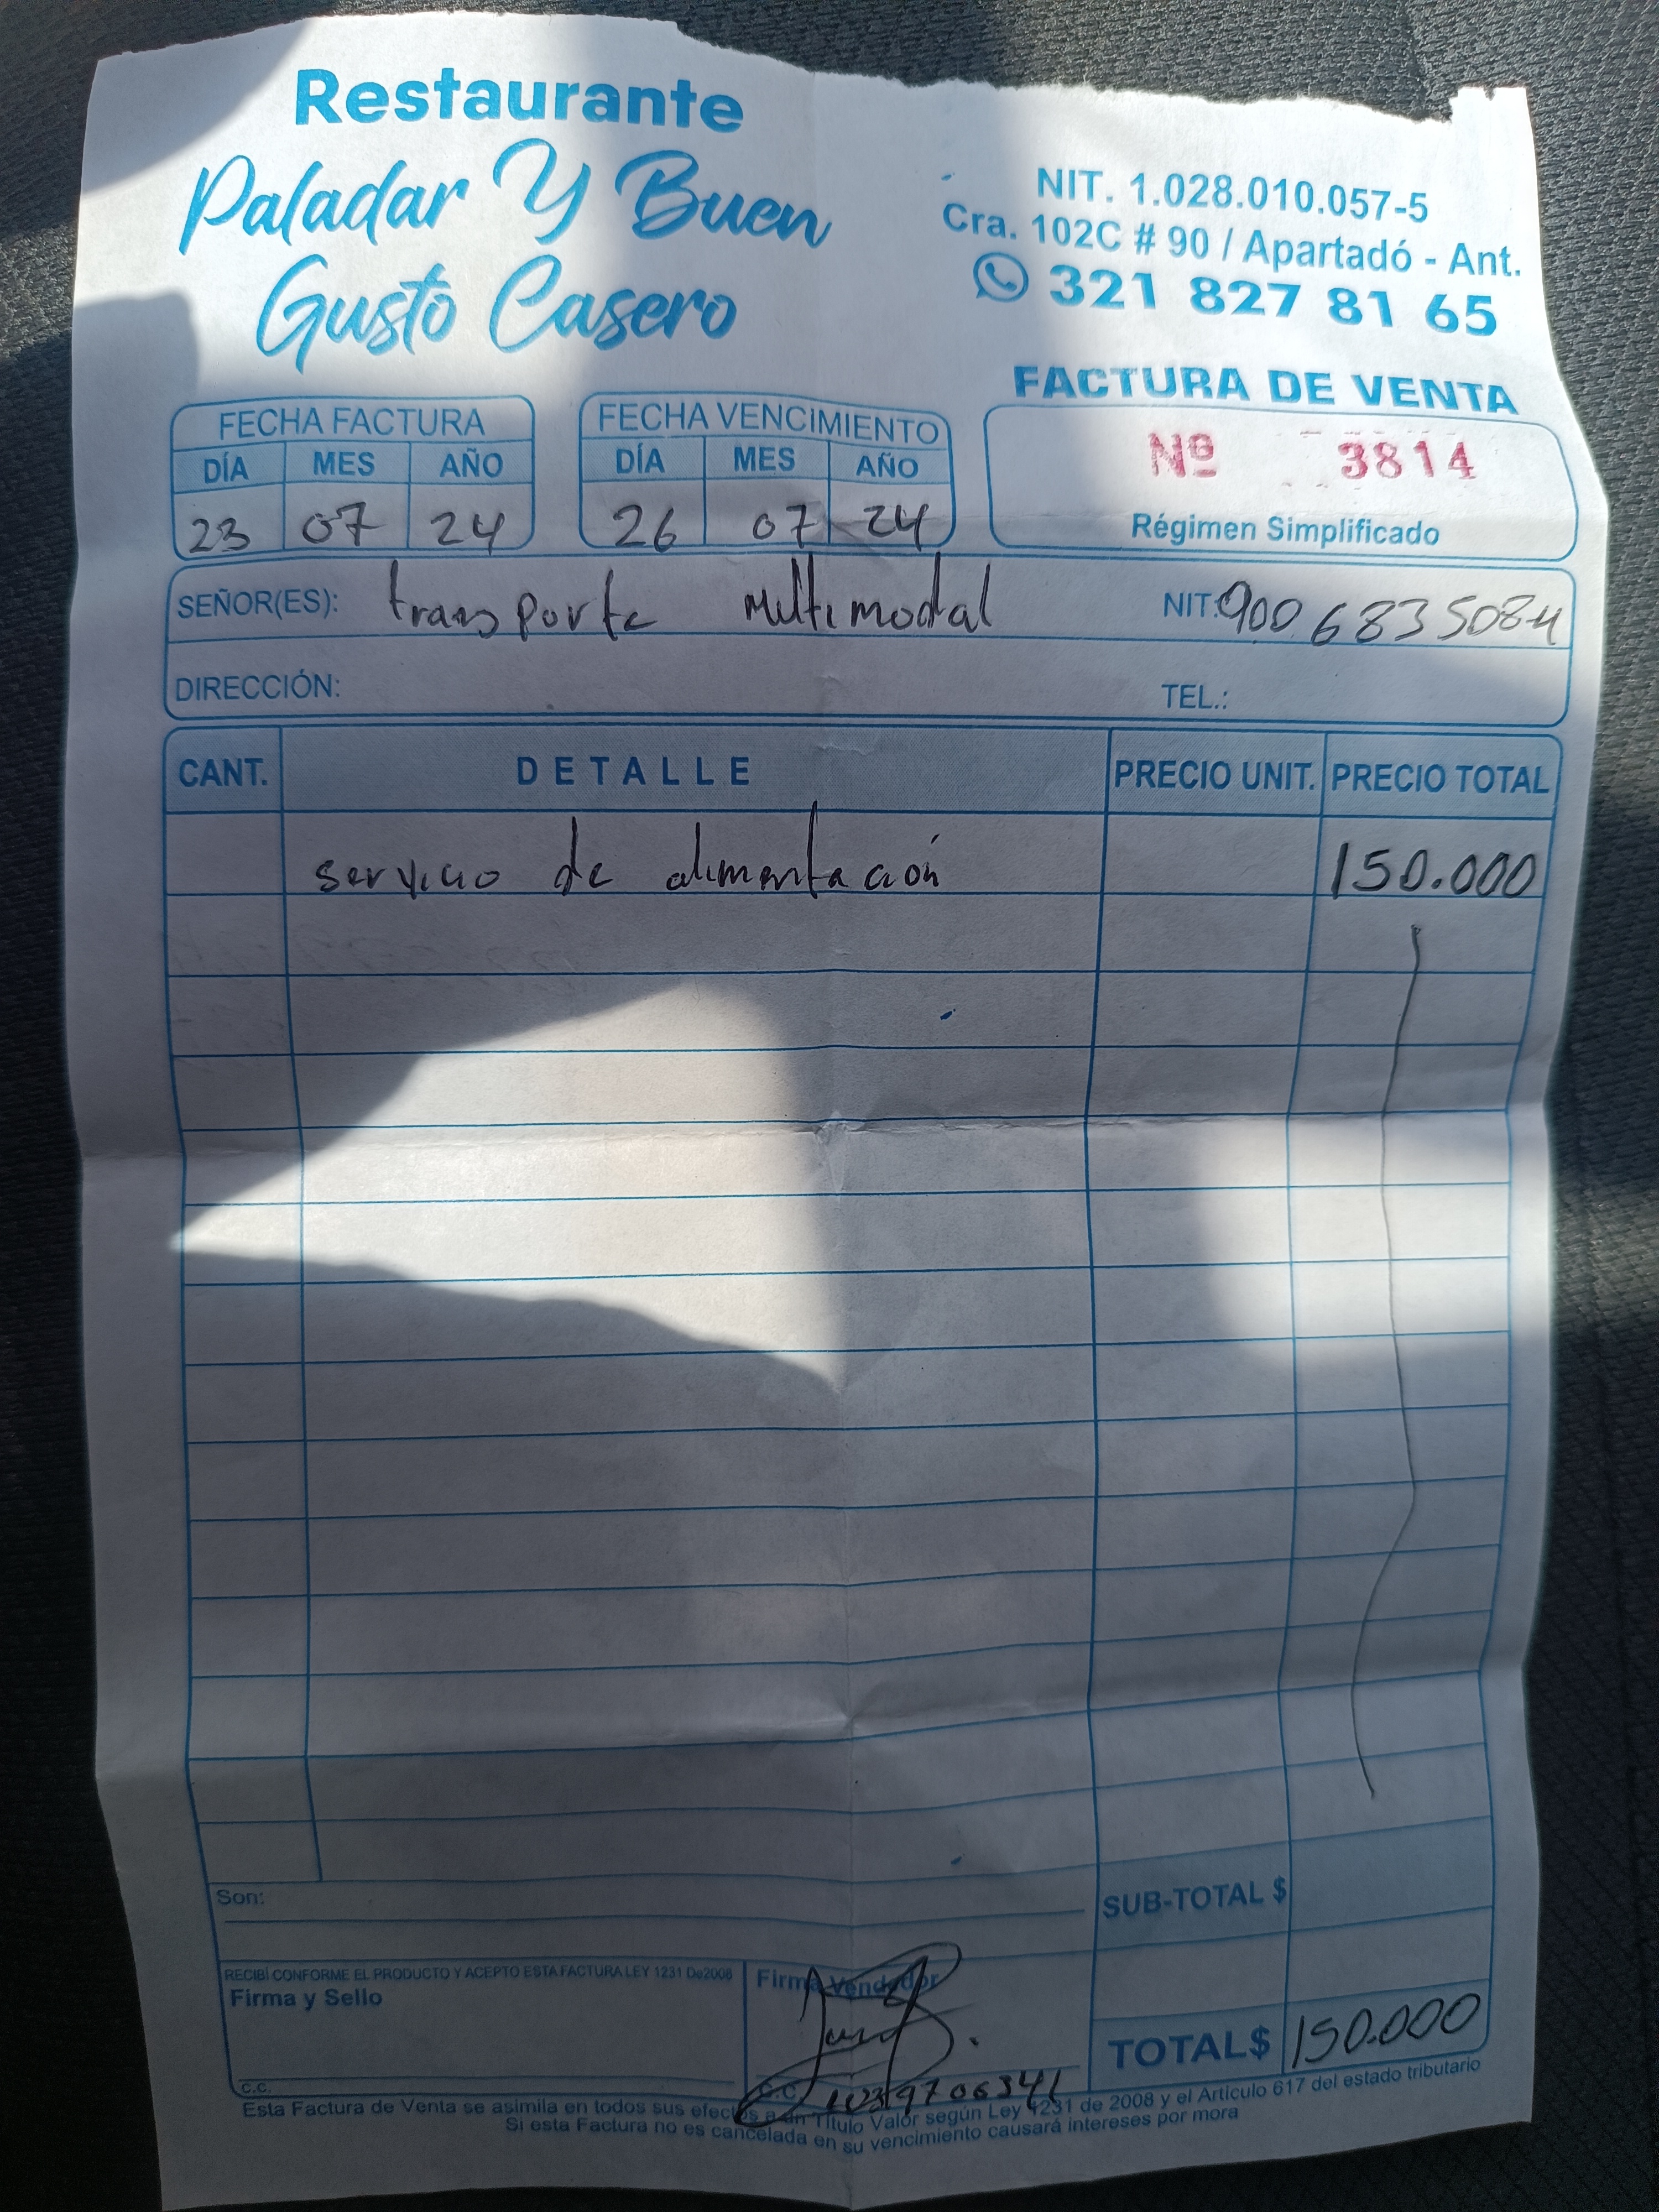 Restaurante
Paladar Y Buen
Gusto Casero
NIT. 1.028.010.057-5
Cra. 102C # 90 / Apartadó - Ant.
321 827 81 65
FACTURA DE VENTA
Nº 3814
Régimen Simplificado
FECHA FACTURA
DÍA MES AÑO
23 07 24
FECHA VENCIMIENTO
DÍA MES AÑO
26 07 24
SEÑOR(ES): transporte Multimodal NIT: 900 6835084
DIRECCIÓN: TEL.:
CANT. DETALLE PRECIO UNIT. PRECIO TOTAL
servicio de alimentación 150.000
Son:
SUB-TOTAL $
RECIBÍ CONFORME EL PRODUCTO Y ACEPTO ESTA FACTURA LEY 1231 De2008
Firma y Sello
C.C.
Firma Vendedor
C.C.
TOTAL $ 150.000
Esta Factura de Venta se asimila en todos sus efectos a un Título Valor según Ley 1231 de 2008 y el Artículo 617 del estado tributario
Si esta Factura no es cancelada en su vencimiento causará intereses por mora